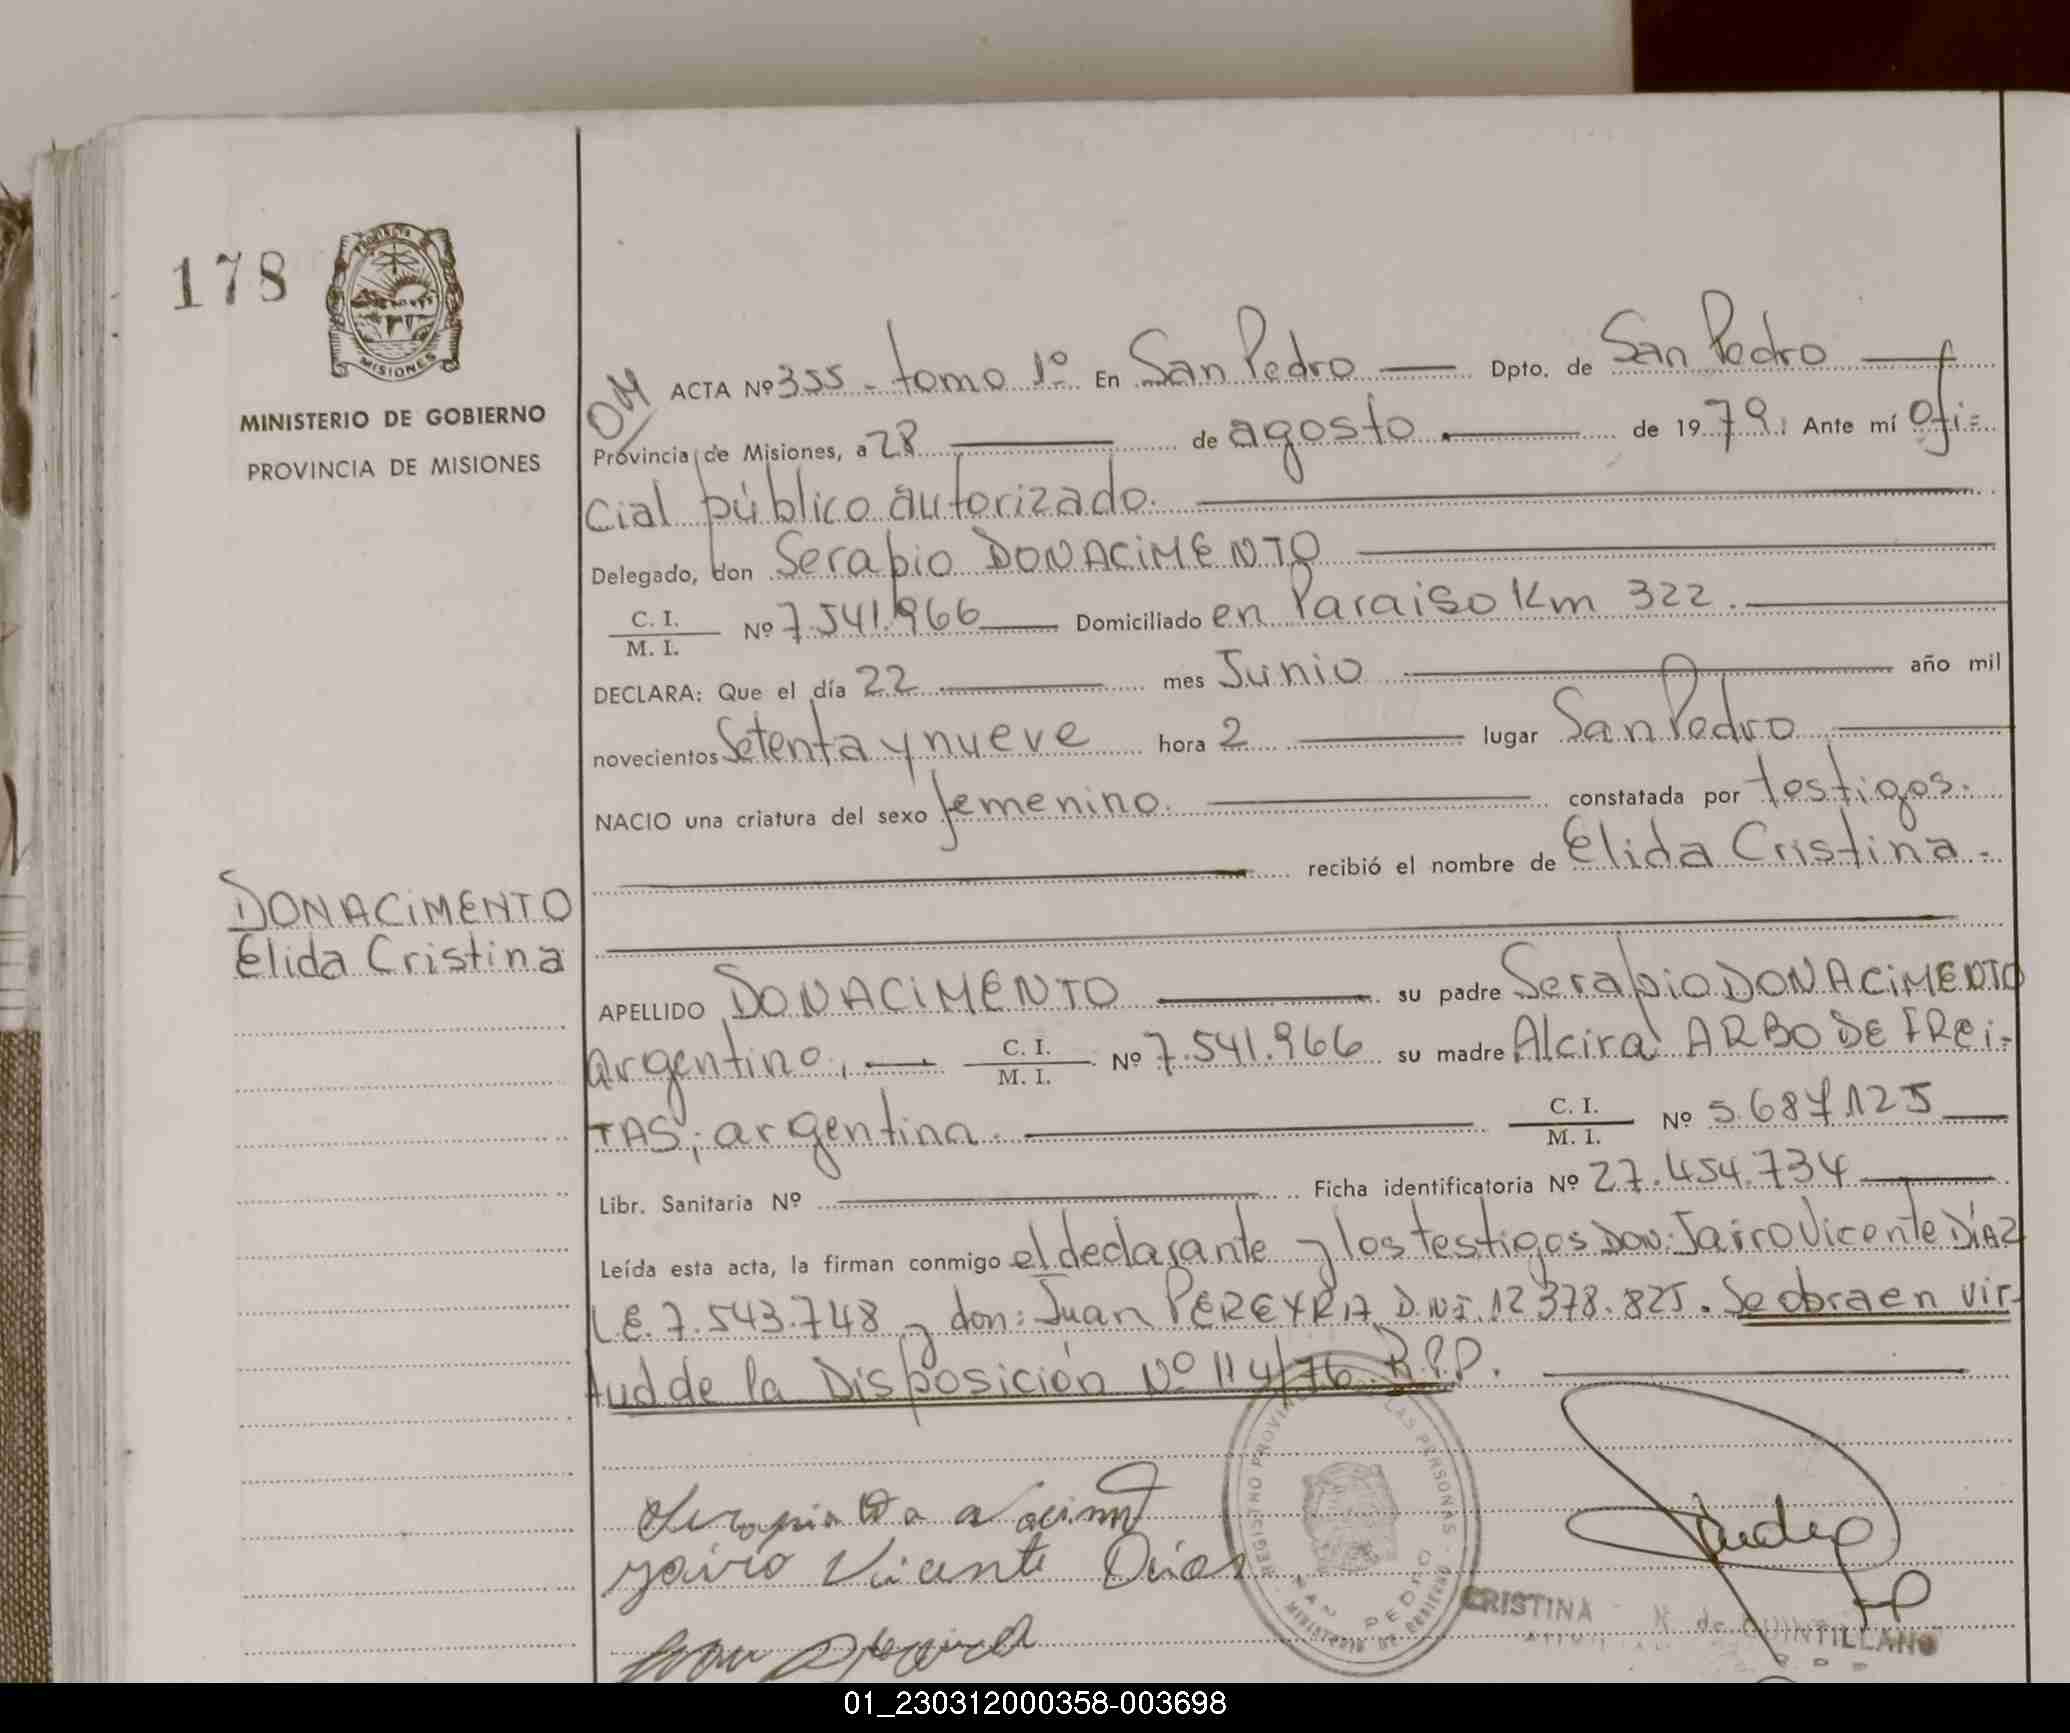 178
PROVINCIA DE
MISIONES
MINISTERIO DE GOBIERNO
PROVINCIA DE MISIONES
DONACIMENTO
Elida Cristina
ACTA Nº 355 - tomo 1º En San Pedro Dpto. de San Pedro
Provincia de Misiones, a 28 de agosto de 1979. Ante mí Ofi=
cial público autorizado.
Delegado, don Serapio DONACIMENTO
C. I.
M. I. Nº 7.541.966 Domiciliado en Paraiso Km 322.
DECLARA: Que el día 22 mes Junio año mil
novecientos Setenta y nueve hora 2 lugar San Pedro
NACIO una criatura del sexo femenino. constatada por testigos.
recibió el nombre de Elida Cristina -
APELLIDO DONACIMENTO su padre Serapio DONACIMENTO
argentino, C. I.
M. I. Nº 7.541.966 su madre Alcira ARBO DE FREI=
TAS; argentina. C. I.
M. I. Nº 5.687.125
Libr. Sanitaria Nº Ficha identificatoria Nº 27.454.734
Leída esta acta, la firman conmigo el declarante y los testigos Don: Jairo Vicente DÍAZ
L.E. 7.543.748 y don: Juan PEREYRA D.N.I. 12.378.825. Se obra en vir-
tud de la Disposición Nº 114/76 R.P.P.
Jairo Vicente Dias
REGISTRO PROVINCIAL DE LAS PERSONAS
SAN PEDRO
MINISTERIO DE GOBIERNO
CRISTINA N. de QUINTILLANO
01_230312000358-003698